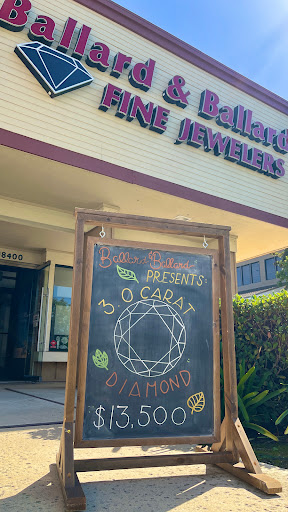 Ballard & Ballard
FINE JEWELERS
8400
Ballard & Ballard
PRESENTS:
3.0 CARAT
DIAMOND
$13,500